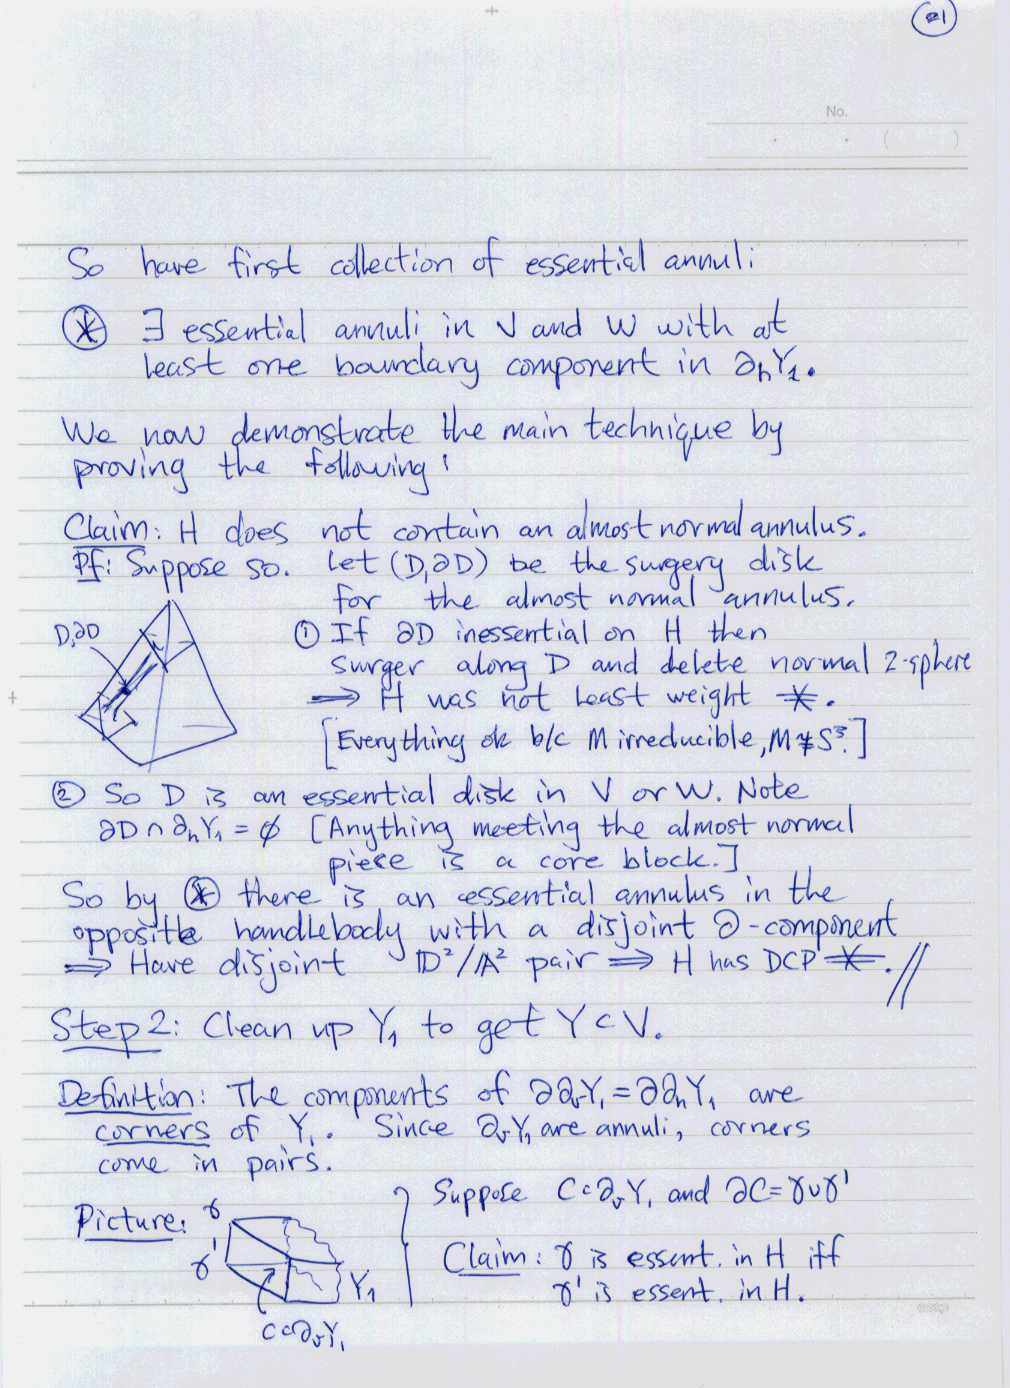 21
No.
So have first collection of essential annuli:
⊛ ∃ essential annuli in V and W with at
least one boundary component in ∂ₕY₁.
We now demonstrate the main technique by
proving the following:
Claim: H does not contain an almost normal annulus.
Pf: Suppose so. Let (D,∂D) be the surgery disk
for the almost normal annulus.
D,∂D
① If ∂D inessential on H then
surger along D and delete normal 2-sphere
⇒ H was not least weight ※.
[Everything ok b/c M irreducible, M≇S³.]
② So D is an essential disk in V or W. Note
∂D∩∂ₕY₁ = ∅ [Anything meeting the almost normal
piece is a core block.]
So by ⊛ there is an essential annulus in the
opposite handlebody with a disjoint ∂-component
⇒ Have disjoint D²/A² pair ⇒ H has DCP ※. //
Step 2: Clean up Y₁ to get Y⊂V.
Definition: The components of ∂∂ᵥY₁ = ∂∂ₕY₁ are
corners of Y₁. Since ∂ᵥY₁ are annuli, corners
come in pairs.
Picture:
γ
γ'
Y₁
C⊂∂ᵥY₁
Suppose C⊂∂ᵥY₁ and ∂C=γ∪γ'
Claim: γ is essent. in H iff
γ' is essent. in H.